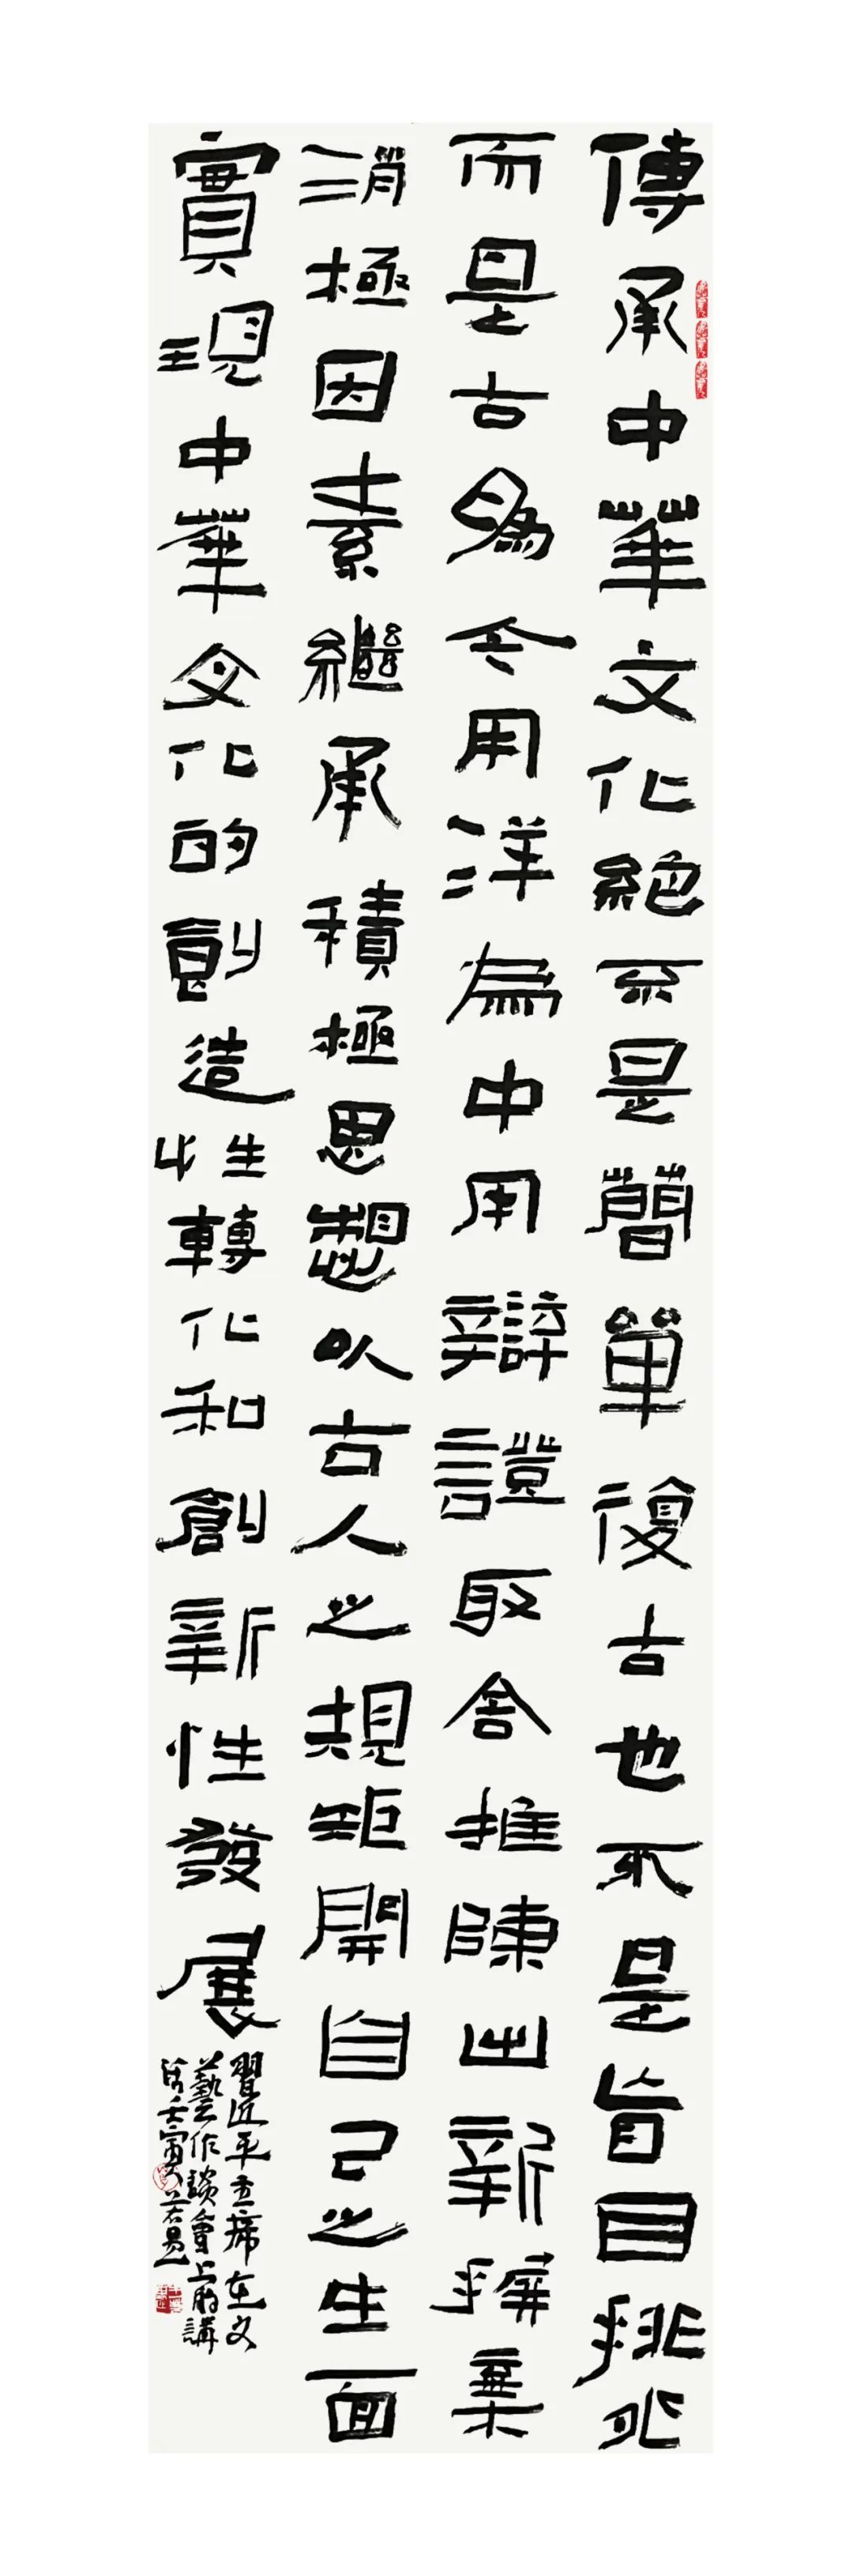 傳承中華文化絕不是簡單復古也不是盲目排外
而是古爲今用洋為中用辯證取舍推陳出新摒棄
消極因素繼承積極思想以古人之規矩開自己之生面
實現中華文化的創造性轉化和創新性發展
習近平主席在文
藝作談會上的講
話壬寅